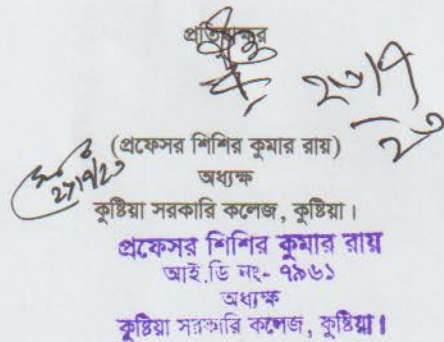 প্রতিস্বাক্ষর
২৩/৭
২৩
(প্রফেসর শিশির কুমার রায়)
২৭/৭/২৩
অধ্যক্ষ
কুষ্টিয়া সরকারি কলেজ, কুষ্টিয়া।
প্রফেসর শিশির কুমার রায়
আই.ডি নং- ৭৯৬১
অধ্যক্ষ
কুষ্টিয়া সরকারি কলেজ, কুষ্টিয়া।